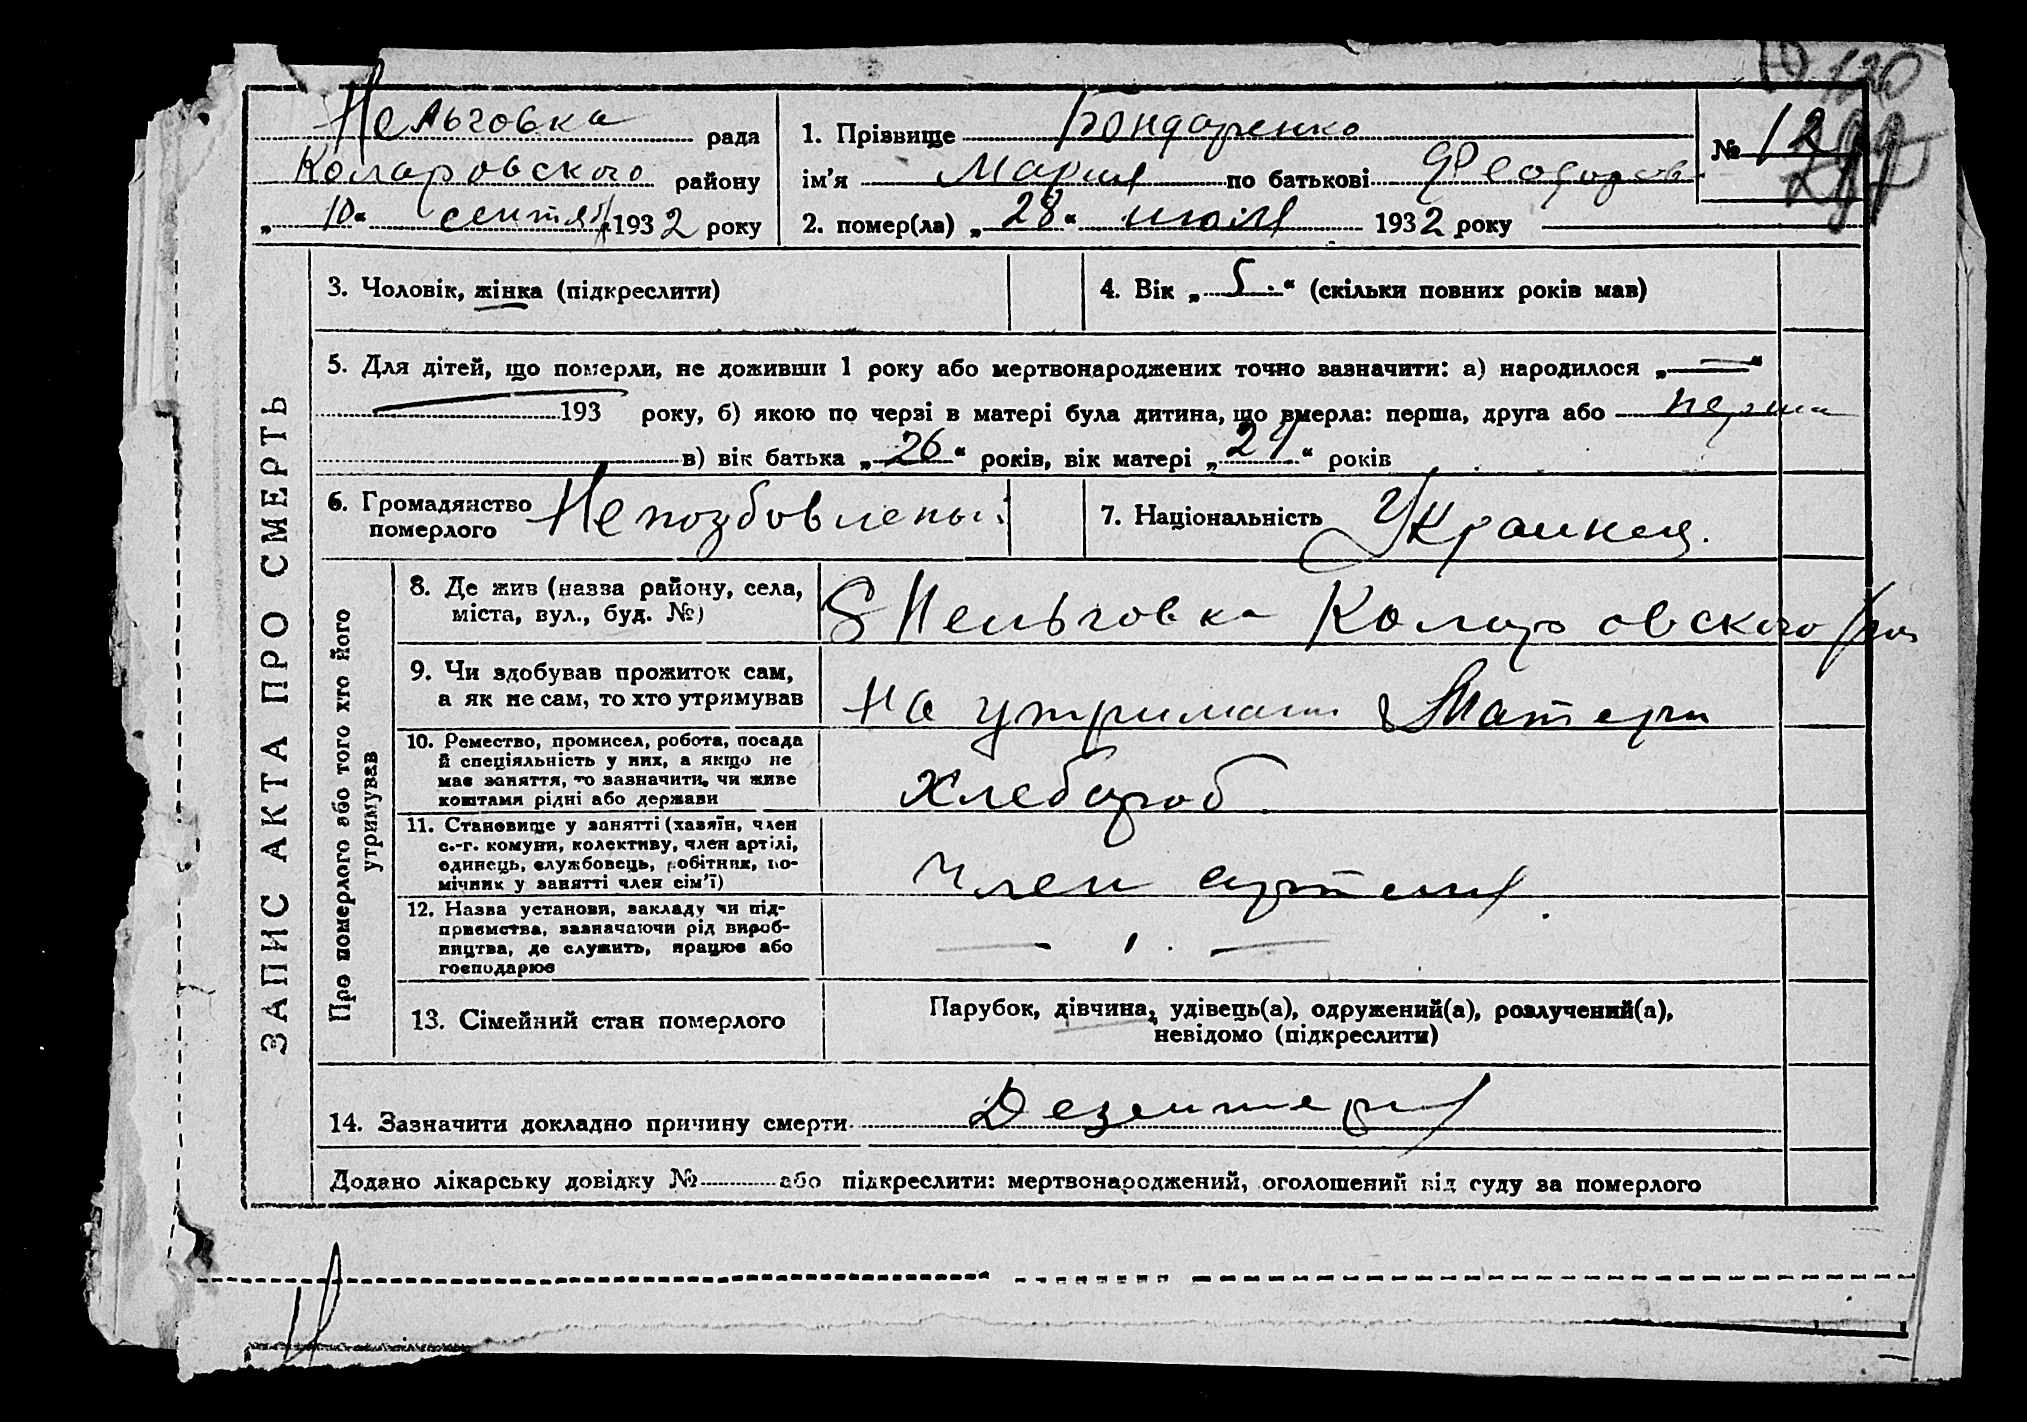 130
Нельговка рада
Коларовского району
„10“ сентяб 1932 року
1. Прізвище Бондаренко
ім’я Мария по батькові Феодоров
2. помер(ла) „28“ июля 1932 року
№ 12
ЗАПИС АКТА ПРО СМЕРТЬ
3. Чоловік, жінка (підкреслити)
4. Вік „5.“ (скільки повних років мав)
5. Для дітей, що померли, не доживши 1 року або мертвонароджених точно зазначити: а) народилося „—“
193 року, б) якою по черзі в матері була дитина, що вмерла: перша, друга або перша
в) вік батька „26“ років, вік матері „27“ років
6. Громадянство
померлого Непозбовлены
7. Національність Украинец.
Про померлого або того хто його
утримував
8. Де жив (назва району, села,
міста, вул., буд. №)
S Нельговка Коларовского рай
9. Чи здобував прожиток сам,
а як не сам, то хто утримував
на утримании Матери
10. Ремество, промисел, робота, посада
й спеціяльність у них, а якщо не
має заняття, то зазначити, чи живе
коштами рідні або держави
хлебороб
11. Становище у занятті (хазяїн, член
с.-г. комуни, колективу, член артілі,
одинець, службовець, робітник, по-
мічник у занятті член сім’ї)
Член артели.
12. Назва установи, закладу чи під-
приємства, зазначаючи рід вироб-
ництва, де служить, працює або
господарює
— , . —
13. Сімейний стан померлого
Парубок, дівчина, удівець(а), одружений(а), розлучений(а),
невідомо (підкреслити)
14. Зазначити докладно причину смерти. Дезентерия
Додано лікарську довідку № або підкреслити: мертвонароджений, оголошений від суду за померлого